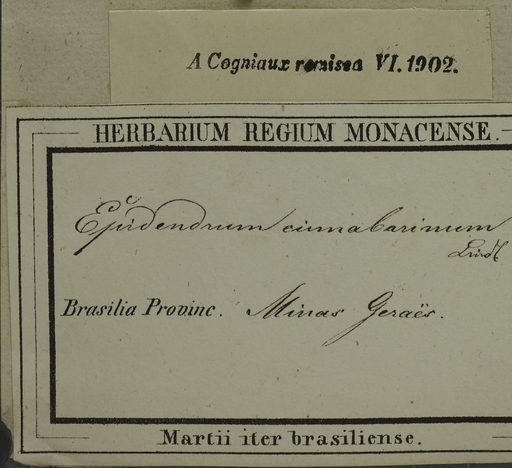 A Cogniaux remissa VI. 1902.
HERBARIUM REGIUM MONACENSE.
Epidendrum cinnabarinum
Lindl
Brasilia Provinc. Minas Geraës.
Martii iter brasiliense.